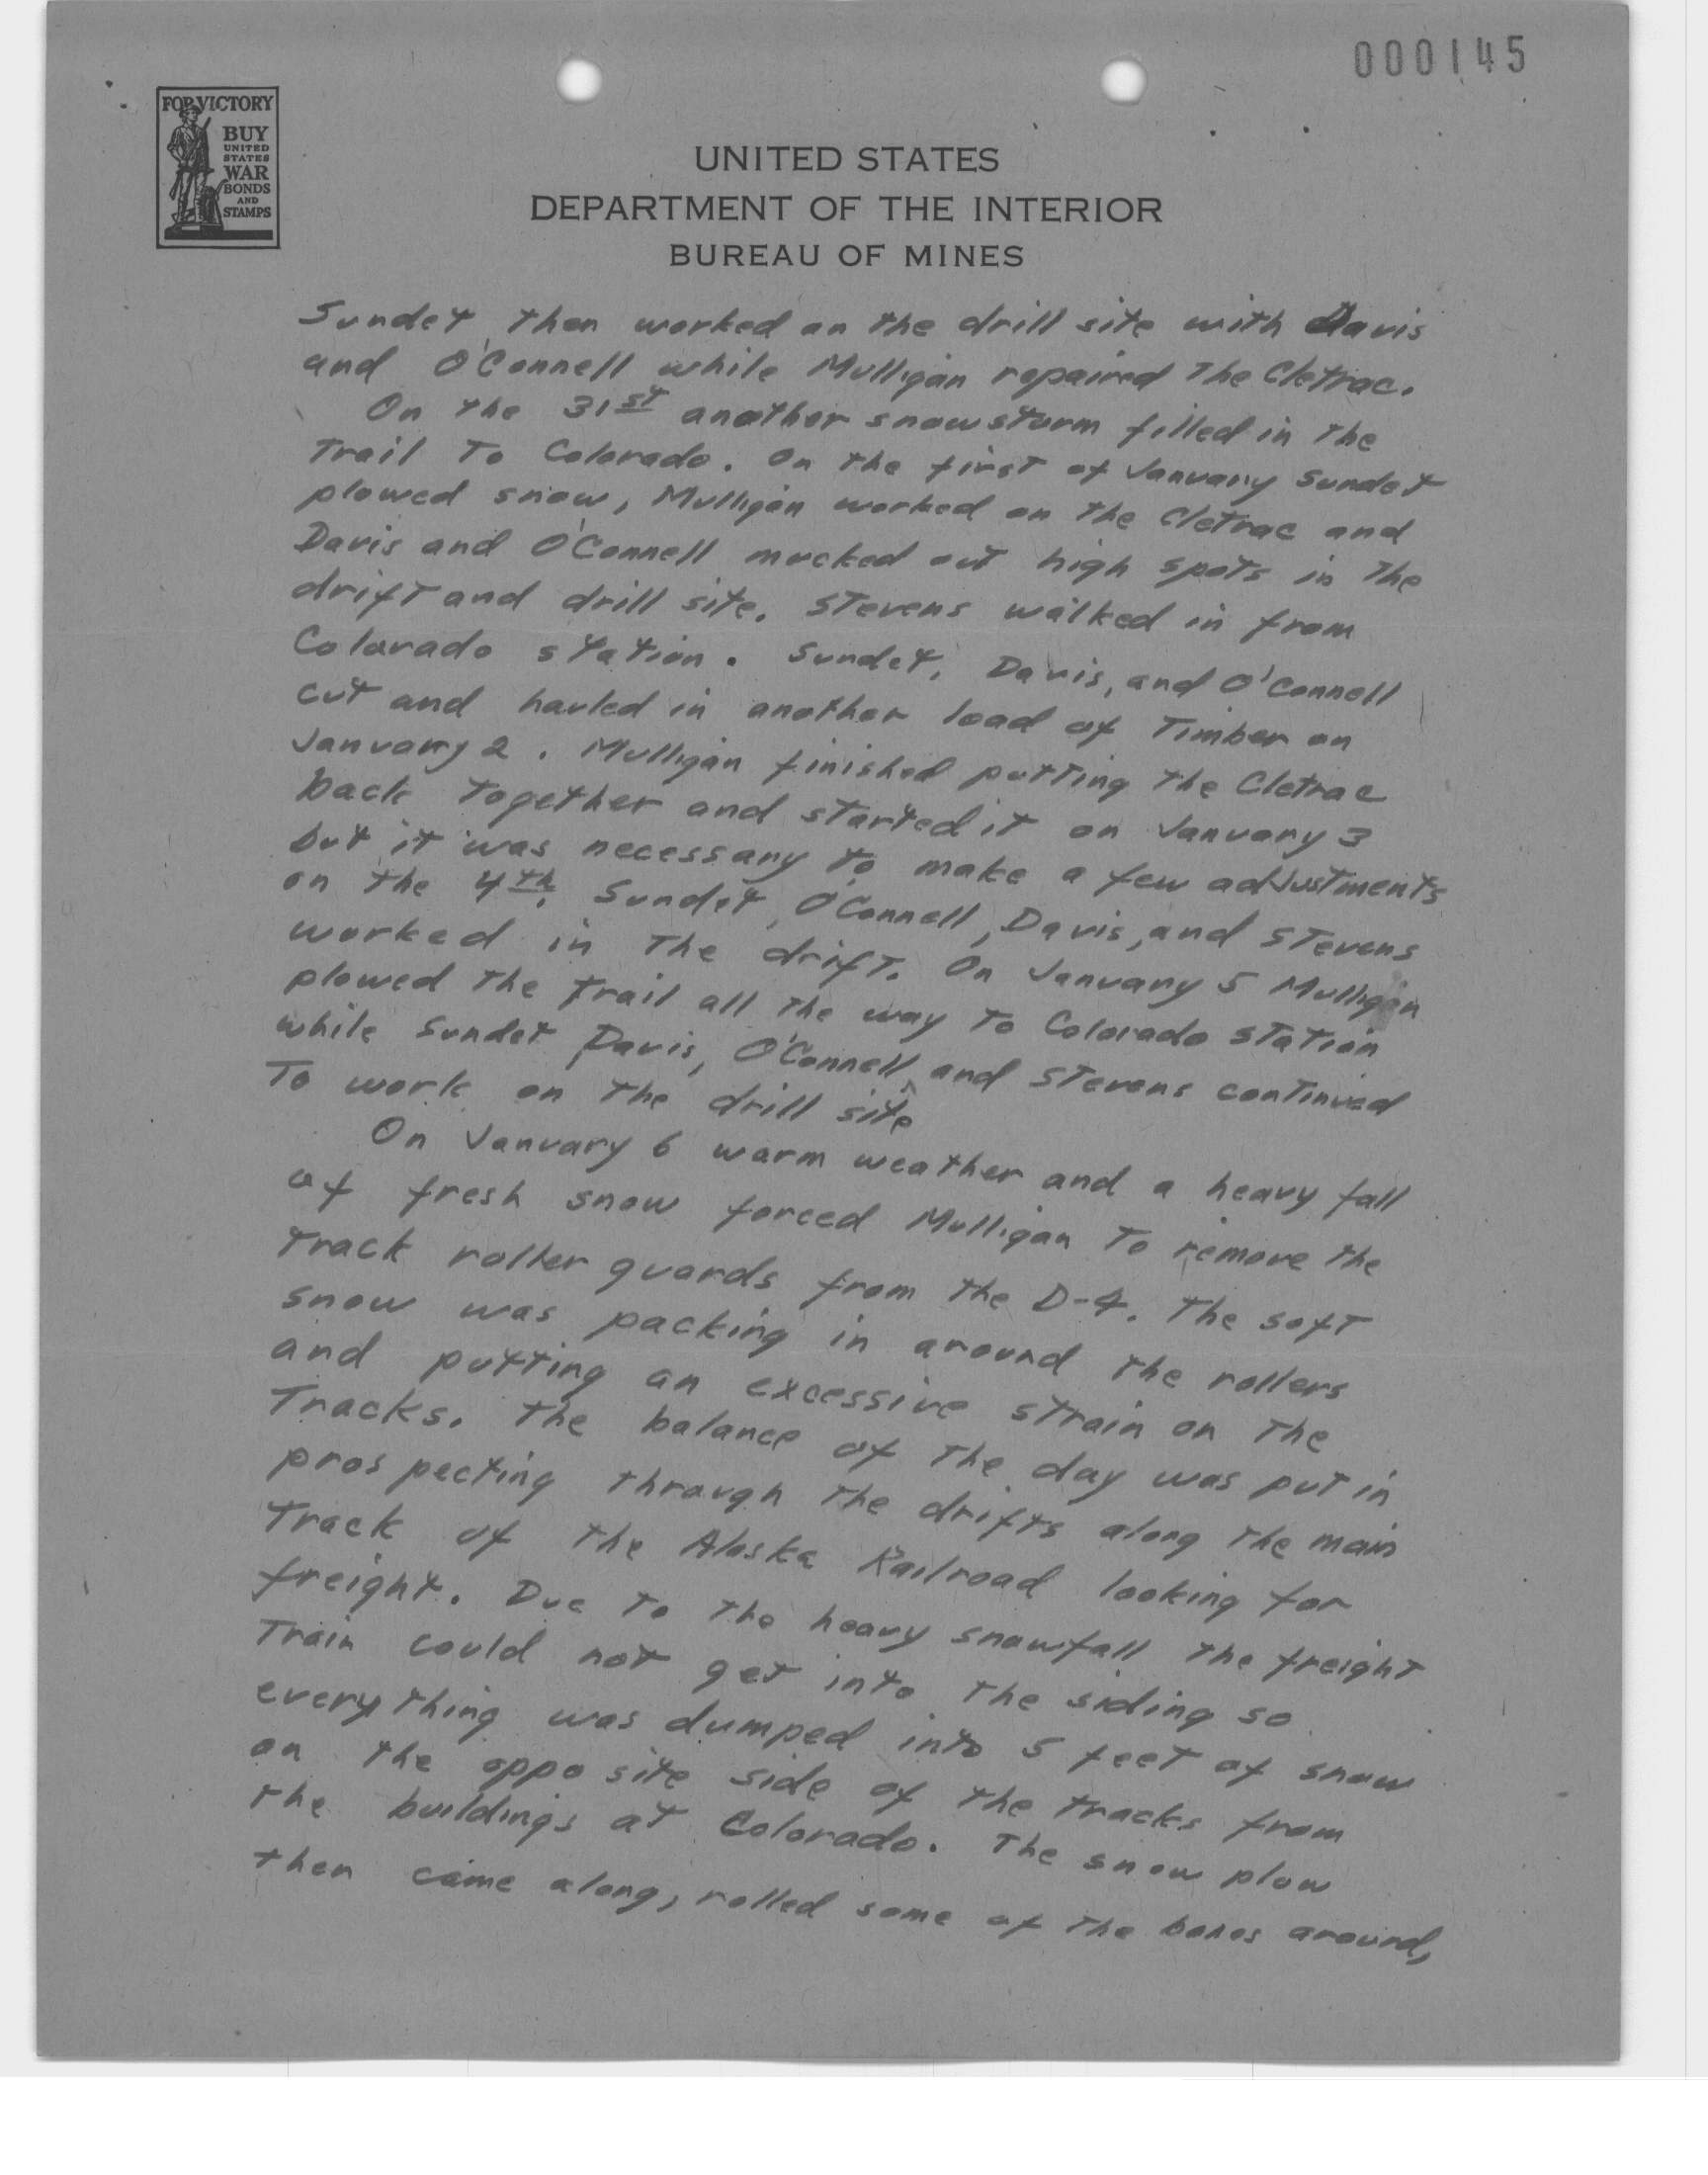 000145
FOR VICTORY
BUY
UNITED
STATES
WAR
BONDS
AND
STAMPS
UNITED STATES
DEPARTMENT OF THE INTERIOR
BUREAU OF MINES
Sundet then worked on the drill site with Davis
and O'Connell while Mulligan repaired the Cletrac.
On the 31st another snowsturm filled in the
trail to Colorado. On the first of January Sundet
plowed snow, Mulligan worked on the Cletrac and
Davis and O'Connell mucked out high spots in the
drift and drill site. Stevens walked in from
Colorado station. Sundet, Davis, and O'Connell
cut and hauled in another load of Timber on
January 2. Mulligan finished putting the Cletrac
back together and started it on January 3
but it was necessary to make a few adjustments
on the 4th. Sundet, O'Connell, Davis, and Stevens
worked in the drift. On January 5 Mulligan
plowed the trail all the way to Colorado station
while Sundet Davis, O'Connell, and Stevens continued
To work on the drill site
On January 6 warm weather and a heavy fall
of fresh snow forced Mulligan to remove the
track roller guards from the D-4. The soft
snow was packing in around the rollers
and putting an excessive strain on the
Tracks. The balance of the day was put in
prospecting through the drifts along the main
track of the Alaska Railroad looking for
freight. Due to the heavy snowfall the freight
train could not get into the siding so
everything was dumped into 5 feet of snow
on the opposite side of the tracks from
the buildings at Colorado. The snow plow
then came along, rolled some of the boxes around,